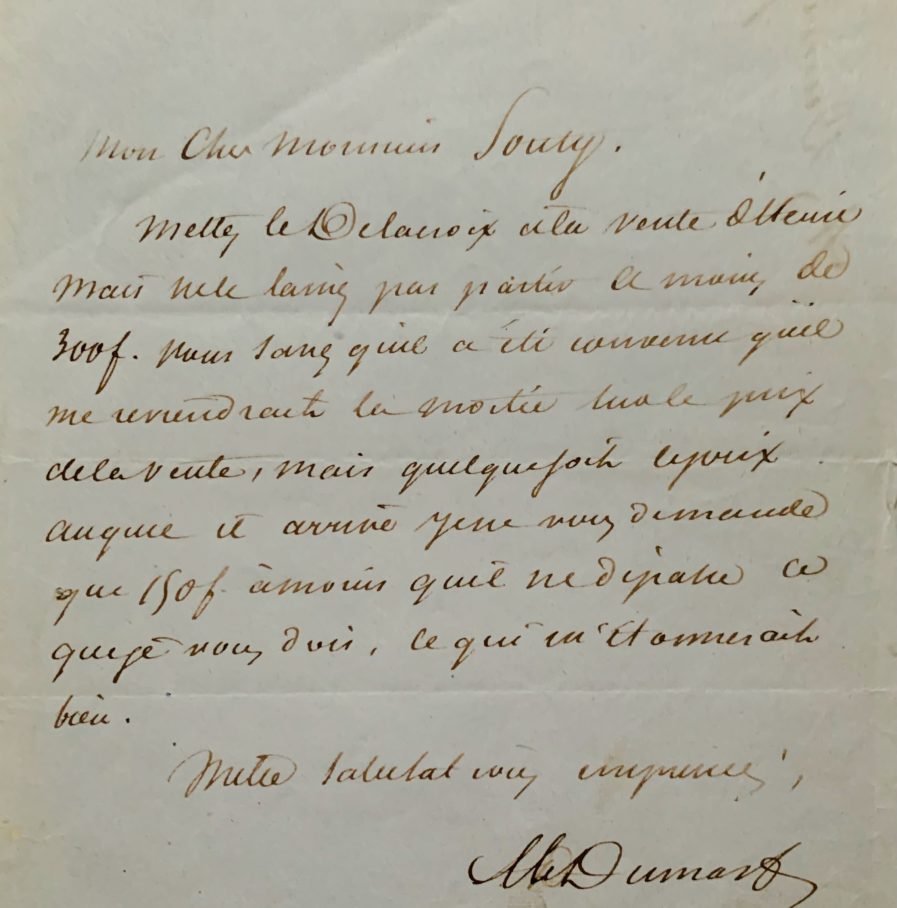 Mon Cher Monsieur Souty.
Mettez le Delacroix à la vente d'Henri
Mais ne le laissez pas partir à moins de
300f. vous savez qu'il a été convenu qu'il
me reviendrait la moitié sur le prix
de la vente, mais quelque soit le prix
auquel il arrive je ne vous demande
que 150f. à moins qu'il ne dépasse ce
que je vous dois, ce qui m'étonnerait
bien.
salutations empressées,
Dumas